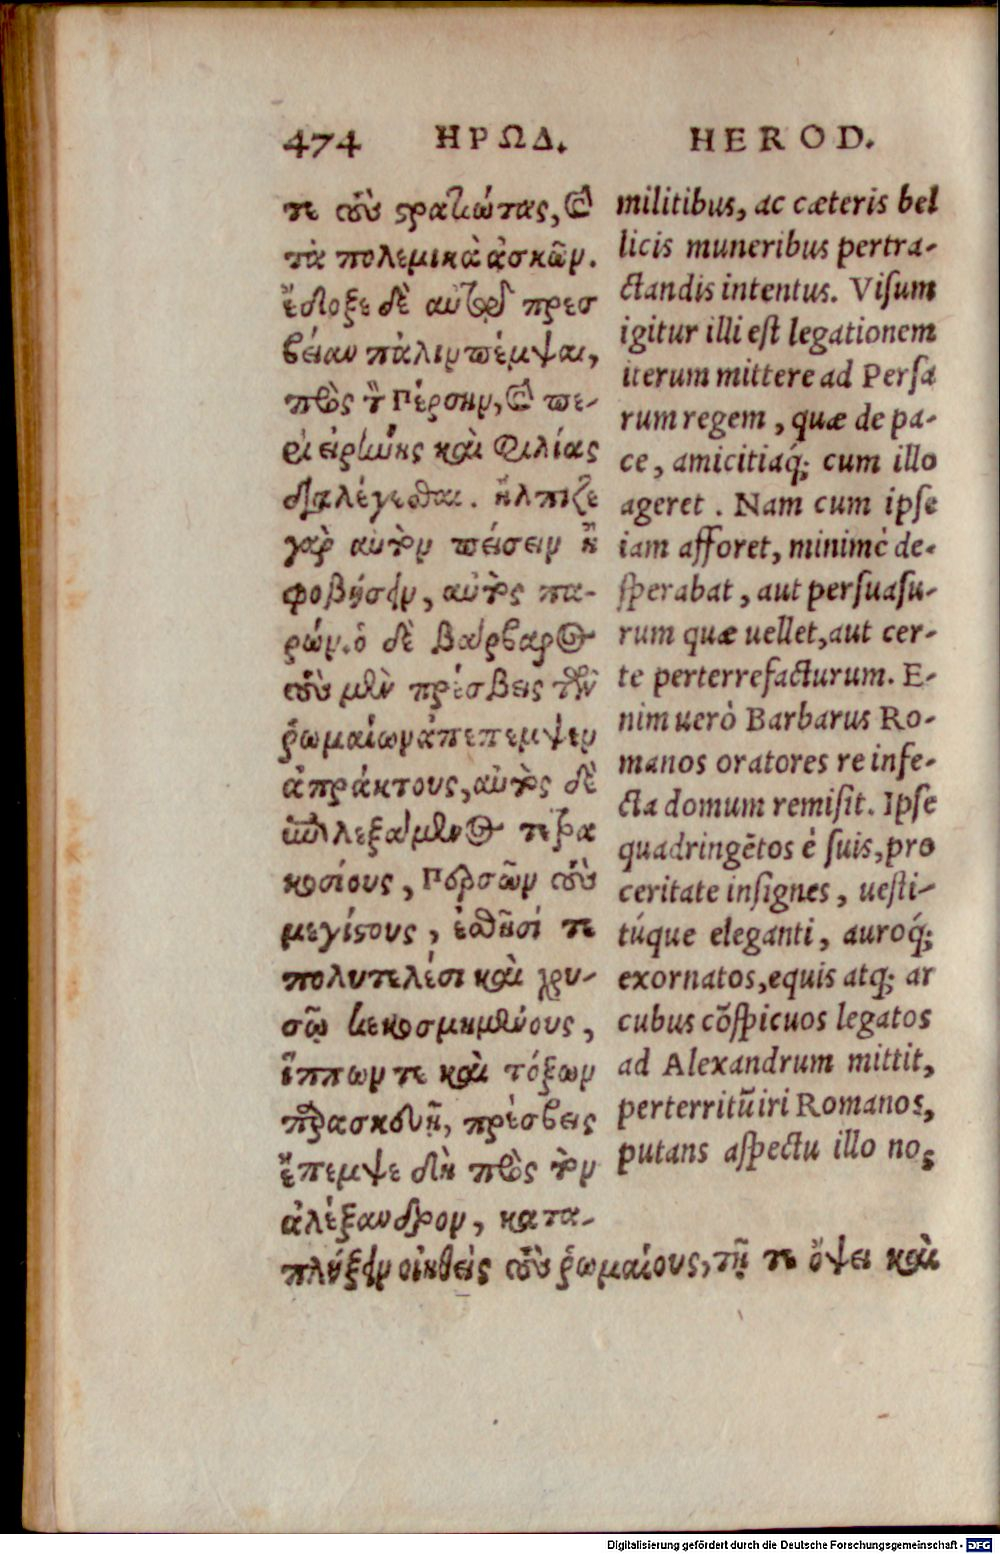 474 ΗΡΩΔ. HEROD.
τε τοὺς στρατιώτας, καὶ
τὰ πολεμικὰ ἀσκῶν.
ἔδοξε δὲ αὐτῷ πρεσ
βείαν πάλιν πέμψαι,
πρὸς τὸν Πέρσην, καὶ πε-
ρὶ εἰρήνης καὶ φιλίας
διαλέγεσθαι. ἤλπιζε
γὰρ αὐτὸν πείσειν ἢ
φοβήσειν, αὐτὸς πα-
ρών. ὁ δὲ βάρβαρος
τοὺς μὲν πρέσβεις τῶν
ῥωμαίων ἀπέπεμψεν
ἀπράκτους, αὐτὸς δὲ
ἐπιλεξάμενος τετρα
κοσίους, Περσῶν τοὺς
μεγίστους, ἐσθῆσί τε
πολυτελέσι καὶ χρυ-
σῷ κεκοσμημένους,
ἵππων τε καὶ τόξων
παρασκευῇ, πρέσβεις
ἔπεμψε δὴ πρὸς τὸν
ἀλέξανδρον, κατα-
πλήξειν οἰηθεὶς τοὺς ῥωμαίους, τῇ τε ὄψει καὶ
militibus, ac cæteris bel
licis muneribus pertra-
ctandis intentus. Visum
igitur illi est legationem
iterum mittere ad Persa
rum regem, quæ de pa-
ce, amicitiaq́; cum illo
ageret. Nam cum ipse
iam afforet, minimè de-
sperabat, aut persuasu-
rum quæ uellet, aut cer-
te perterrefacturum. E-
nim uerò Barbarus Ro-
manos oratores re infe-
cta domum remisit. Ipse
quadringẽtos è suis, pro
ceritate insignes, uesti-
túque eleganti, auroq́;
exornatos, equis atq; ar
cubus cõspicuos legatos
ad Alexandrum mittit,
perterritũiri Romanos,
putans aspectu illo nos
Digitalisierung gefördert durch die Deutsche Forschungsgemeinschaft - DFG